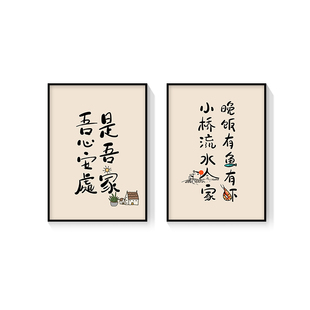 是吾家
吾心安處
晚饭有鱼有虾
小桥流水人家